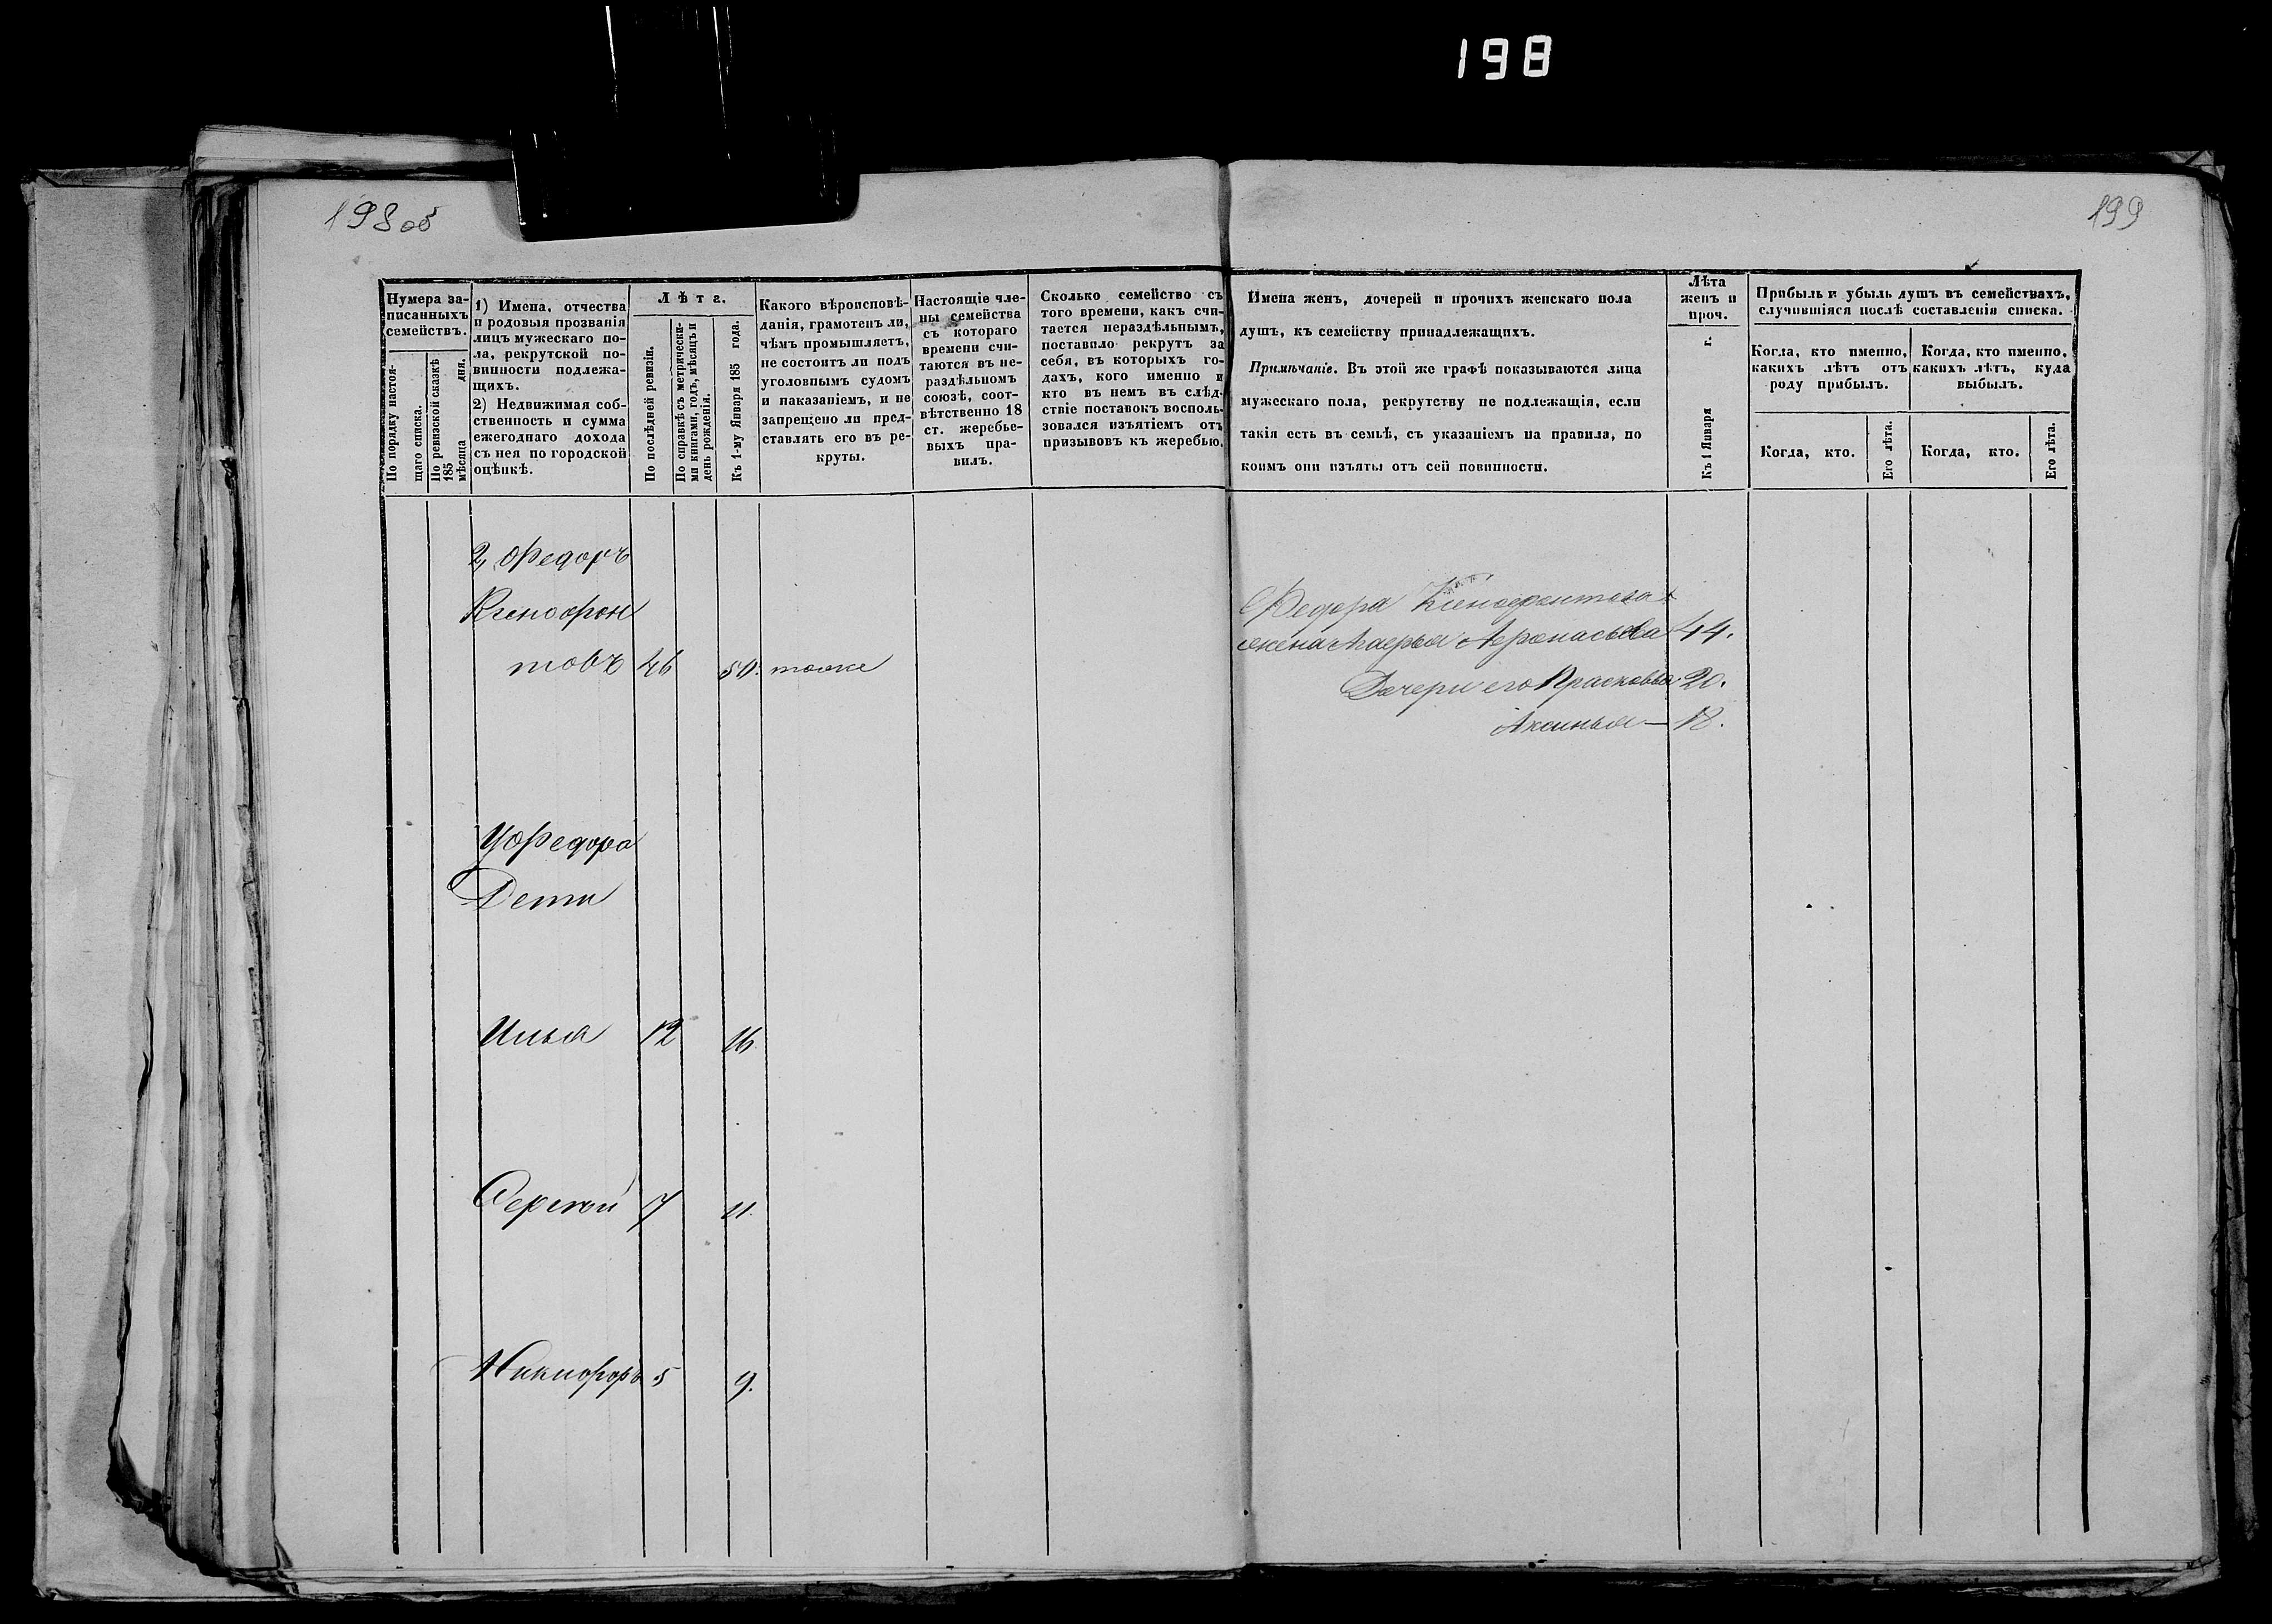 198
198 об
199
Нумера записанныхъ семействъ.
По порядку настоящаго списка.
По ревизской сказкѣ 185 мѣсяца дня.
1) Имена, отчества
и родовыя прозванія
лицъ мужескаго по-
ла, рекрутской по-
винности подлежа-
щихъ.
2) Недвижимая соб-
ственность и сумма
ежегоднаго дохода
съ нея по городской
оцѣнкѣ.
Лѣта.
По послѣдней ревизіи.
По справкѣ съ метрически-
ми книгами, годъ, мѣсяцъ и
день рожденія.
Къ 1-му Января 185 года.
Какого вѣроисповѣ-
данія, грамотенъ ли,
чѣмъ промышляетъ,
не состоитъ ли подъ
уголовнымъ судомъ
и наказаніемъ, и не
запрещено ли пред-
ставлять его въ ре-
круты.
Настоящіе чле-
ны семейства
съ котораго
времени счи-
таются въ не-
раздѣльномъ
союзѣ, соот-
вѣтственно 18
ст. жеребье-
выхъ пра-
вилъ.
Сколько семейство съ
того времени, какъ счи-
тается нераздѣльнымъ,
поставило рекрутъ за
себя, въ которыхъ го-
дахъ, кого именно и
кто въ немъ въ слѣд-
ствіе поставокъ восполь-
зовался изъятіемъ отъ
призывовъ къ жеребью.
Имена женъ, дочерей и прочихъ женскаго пола
душъ, къ семейству принадлежащихъ.
Примѣчаніе. Въ этой же графѣ показываются лица
мужескаго пола, рекрутству не подлежащія, если
такія есть въ семьѣ, съ указаніемъ на правила, по
коимъ они изъяты отъ сей повинности.
Лѣта
женъ и
проч.
Къ 1 Января г.
Прибыль и убыль душъ въ семействахъ,
случившіяся послѣ составленія списка.
Когда, кто именно,
какихъ лѣтъ отъ
роду прибылъ.
Когда, кто именно,
какихъ лѣтъ, куда
выбылъ.
Когда, кто.
Его лѣта.
Когда, кто.
Его лѣта.
2, Федоръ
Ксенофон
товъ 46 50. тоже
У Федора
Дети
Илья 12 16.
Сергей 7 11.
Никифоръ 5 9.
Федора Ксенофонтова
жена Марья Афонасьева 44.
Дочери его Прасковья 20.
Аксинья — 18.